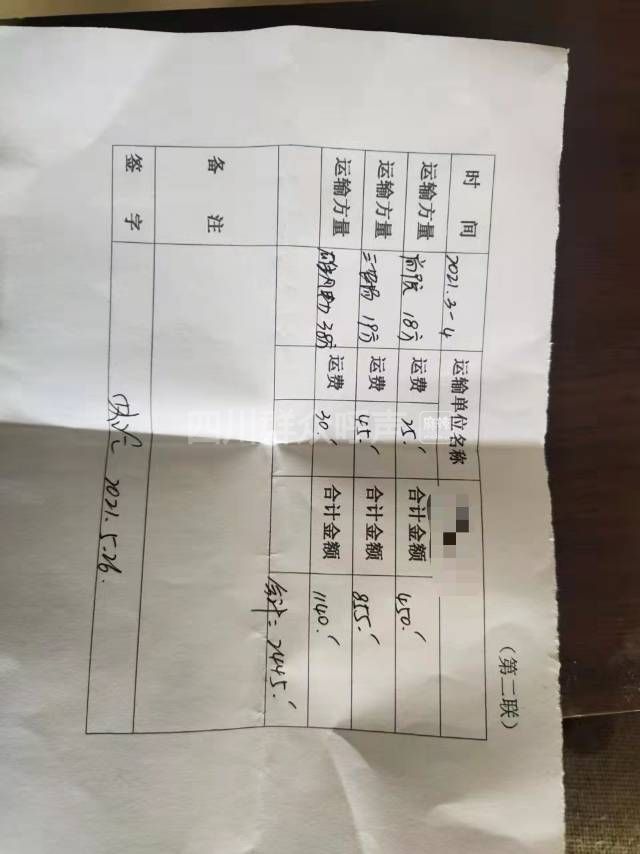 （第二联）
时 间 2021.3-4 运输单位名称
运输方量 前院 18方 运费 25. 合计金额 450.
运输方量 19方 运费 45. 合计金额 855.
运输方量 38方 运费 30. 合计金额 1140.
合计: 2445.
备 注
签 字 2021.5.26.
四川群众呼声